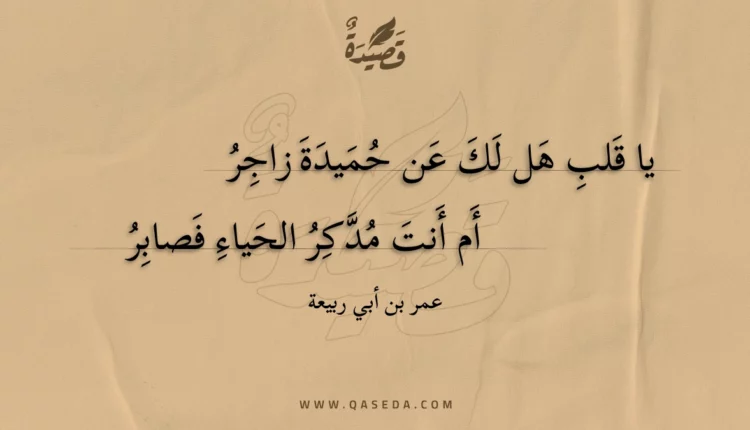 قَصِيدَةٌ
يا قَلبِ هَل لَكَ عَن حُمَيدَةَ زاجِرُ
أَم أَنتَ مُدَّكِرُ الحَياءِ فَصابِرُ
عمر بن أبي ربيعة
WWW.QASEDA.COM